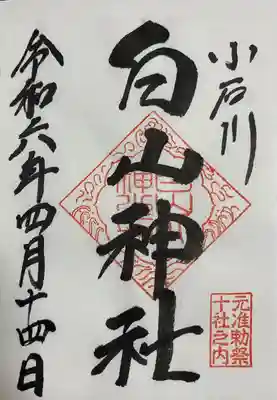 小石川
白山神社
元准勅祭
十社之内
令和六年四月十四日